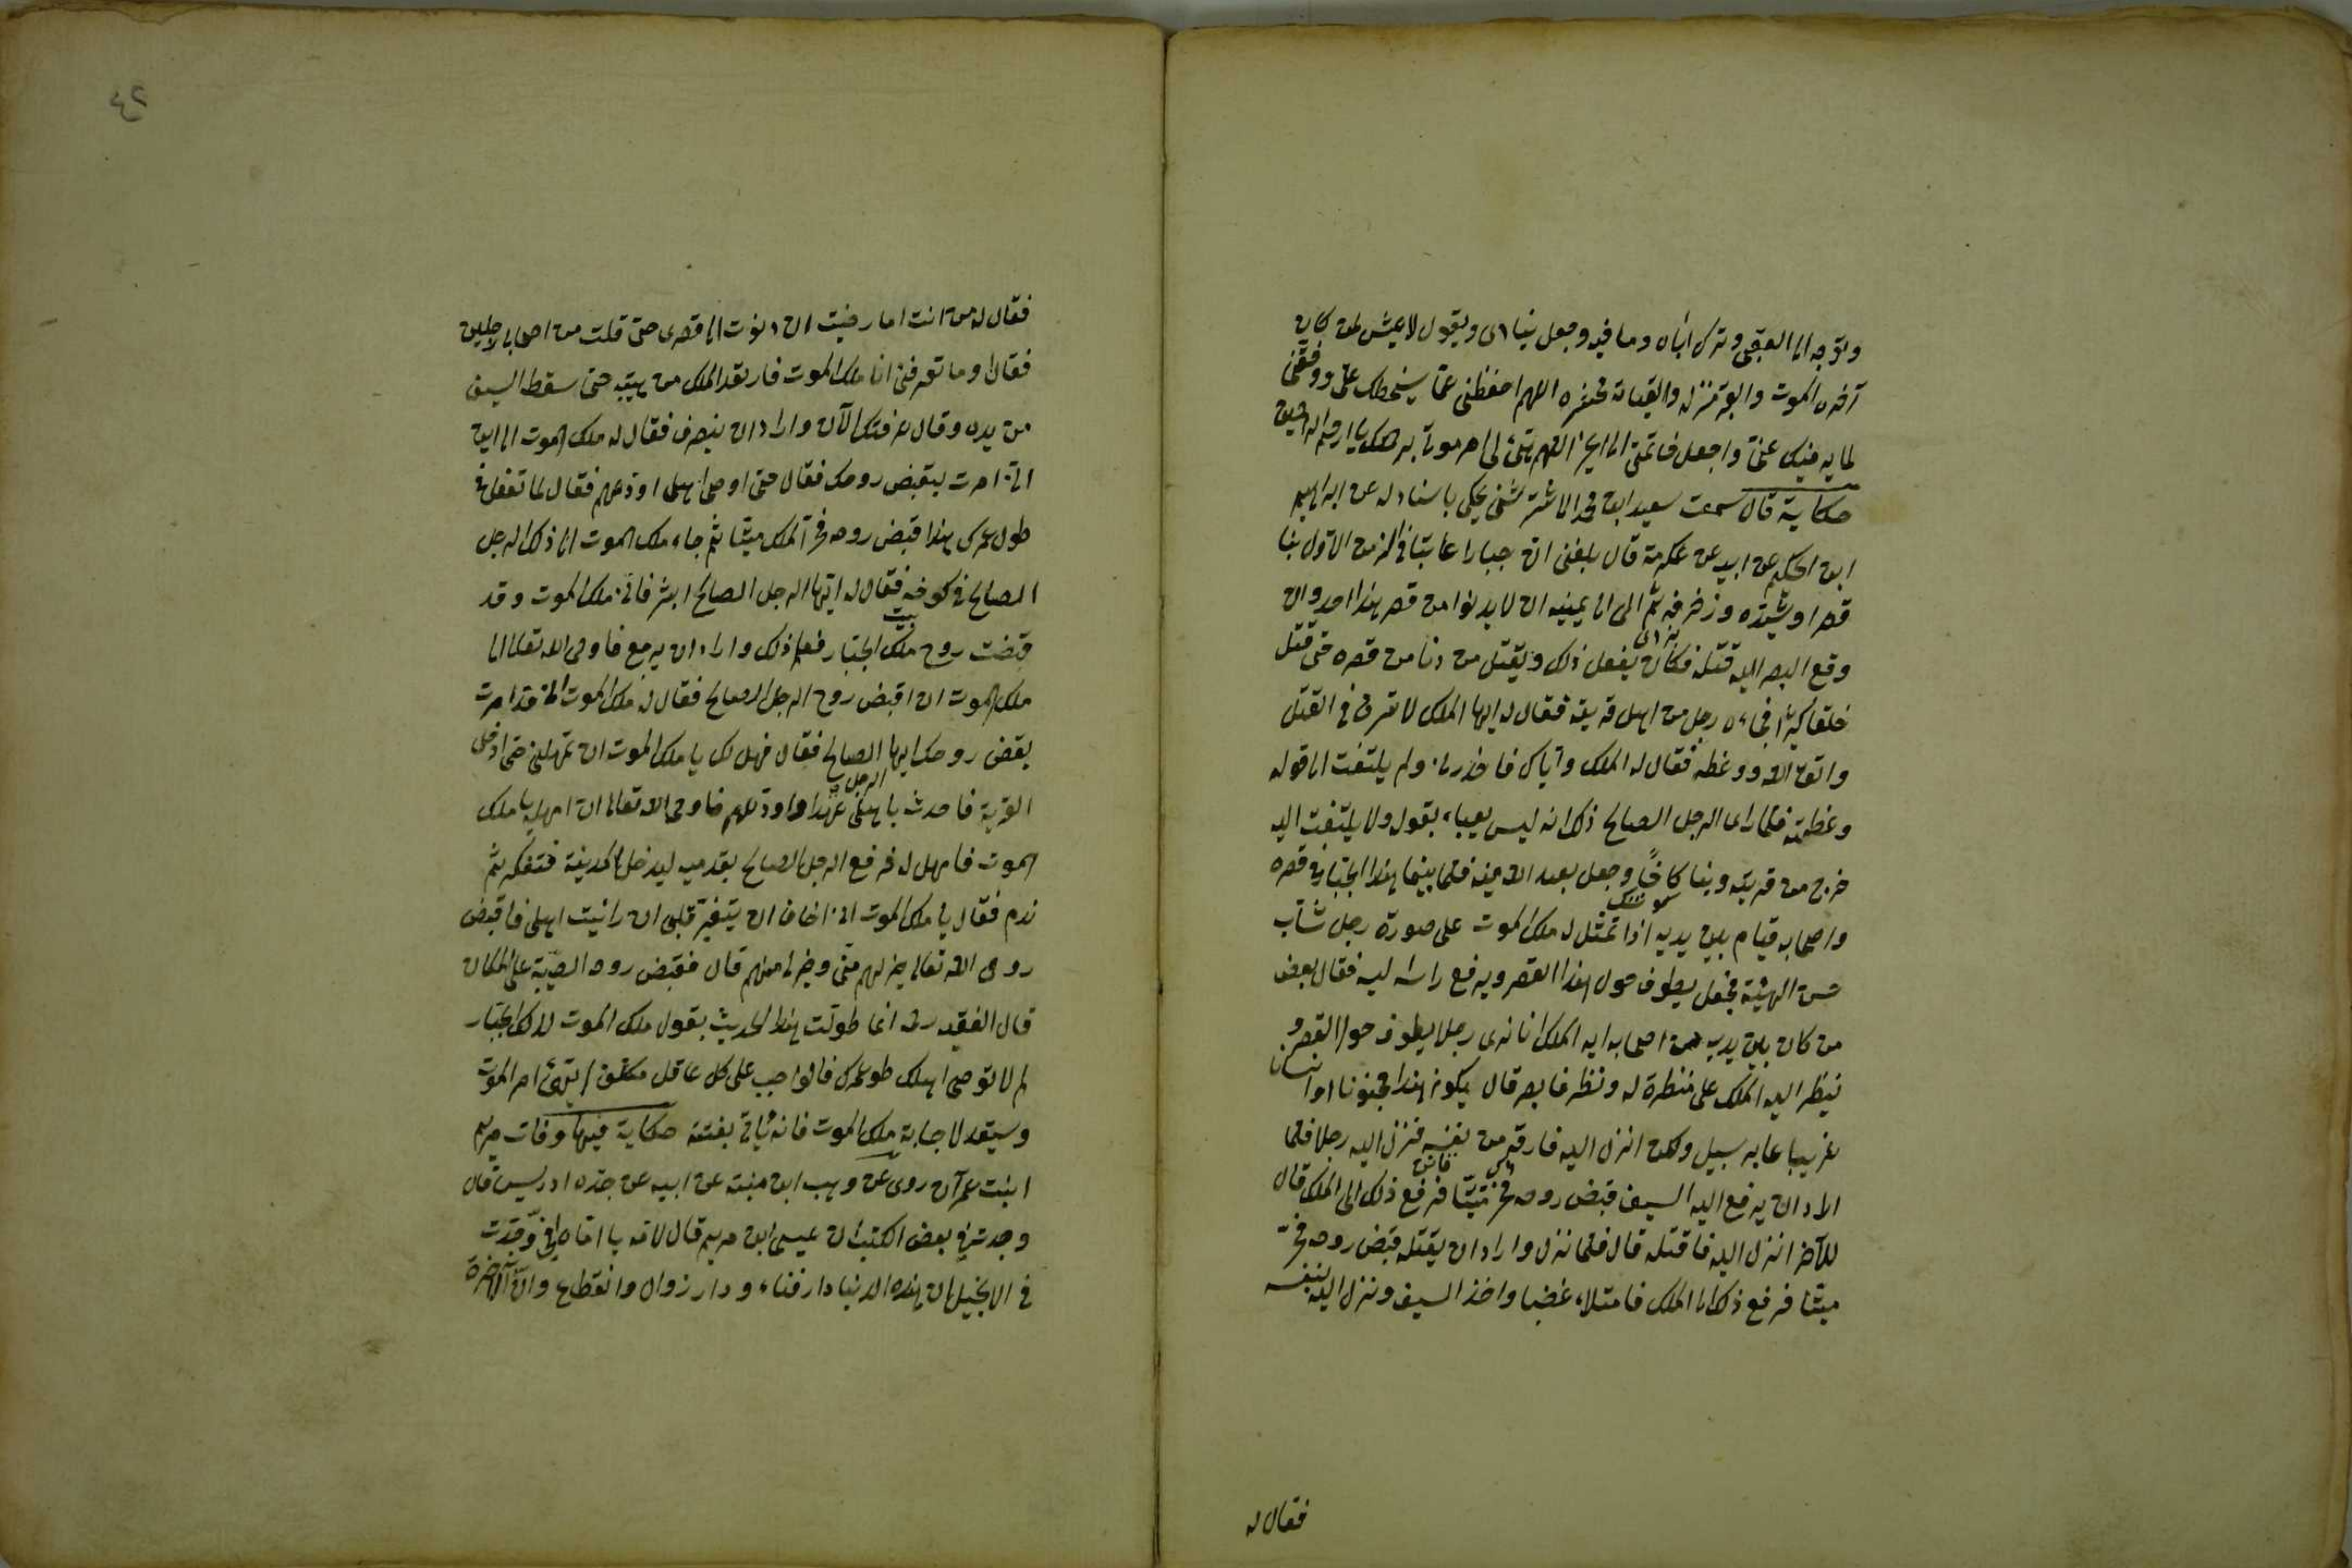 وتوجه الى العقبى وترك دنياه وما فيه وجعل ينادى ويقول لا عيش لمن كان
آخره الموت والقبر منزله والقيامة محشره اللهم احفظنى عمّا يسخطك علىّ ووفقنى
لما يرضيك عنى واجعل خاتمتى الى الخير اللهم هيّئ لى امر موتى برحمتك يا ارحم الراحمين
حكاية قال سمعت سعيد ابن محمد يحكى باسناد له عن ابراهيم
ابن الحكم عن ابيه عن عكرمة قال بلغنى ان جبارا عاتيا فى الزمن الاول بنا
قصرا وشيّده وزخرفه ثم الى الى يمينه ان لا يدنوا من قصر هذا احد وان
وقع البصر اليه قتله فكان يفعل ذلك ويقتل من دنا من قصره حتى قتل
خلقا كثيرا فجاءه رجل من اهل قريته فقال له ايها الملك لا تسرف فى القتل
واتق الله ووعظه فقال له الملك واياك فاحذر ولم يلتفت الى قوله
وعظته فلما راى الرجل الصالح ذلك انه ليس يعباء بقوله ولا يلتفت اليه
خرج من قريته وبنا كاخًا وجعل يعبد الله فيه فلما بينما هذا الجبار فى قصره
واصحابه قيام بين يديه اذا تمثل له ملك الموت على صورة رجل شاب
حسن الهيئة فجعل يطوف حول هذا القصر ويرفع راسه اليه فقال بعض
من كان بين يديه من اصحابه ايه الملك انا نرى رجلا يطوف حول القصر و
ينظر اليه الملك على منظرة له ونظر فابصر قال يكون هذا مجنونا او انسانا
غريبا عابر سبيل ولكن انزل اليه فارقه من نفسه فنزل اليه رجلا فلما
اراد ان يرفع اليه السيف قبض روحه فخر ميّتا فرفع ذلك الى الملك قال
للآخر انزل اليه فاقتله قال فلما نزل واراد ان يقتله قبض روحه فخرّ
ميتا فرفع ذلك الى الملك فامتلاء غضبا واخذ السيف ونزل اليه بنفسه
فقال له
٢٤
فقال له من انت اما رضيت ان دنوت الى قصرى حتى قتلت من اصحابى رجلين
فقال او ما تعرفنى انا ملك الموت فارتعد الملك من هيبته حتى سقط السيف
من يده وقال عرفتك الآن واراد ان ينصرف فقال له ملك الموت الى اين
انى امرت بقبض روحك فقال حتى اوصى اهلى اودعهم فقال لما تفعل فى
طول عمرك هذا قبض روحه فخرّ الملك ميتا ثم جاء ملك الموت الى ذلك الرجل
الصالح فى كوخه فقال له ايها الرجل الصالح ابشر فانى ملك الموت وقد
قبضت روح ملك الجبار فعلم ذلك واراد ان يرجع فاوحى الله تعالى الى
ملك الموت ان اقبض روح الرجل الصالح فقال له ملك الموت انى قد امرت
بقبض روحك ايها الرجل الصالح فقال فهل لك يا ملك الموت ان تمهلنى حتى ادخل
القرية فاحدث باهلى عهدا واودعهم فاوحى الله تعالى ان امهله يا ملك
الموت فامهل له فرفع الرجل الصالح بقدميه ليدخل المدينة فتفكر ثم
ندم فقال يا ملك الموت انى اخاف ان يتغير قلبى ان رائيت اهلى فاقبض
روحى الله تعالى خير لهم منى وخير لى منهم قال فقبض روحه الطيبة على المكان
قال الفقيه رحمه انما طولت هذا الحديث بقول ملك الموت لذلك الجبار
لم لا توصى اهلك طول عمرك فالواجب على كل عاقل مكلف ان يهيّئ امر الموت
وستعد لاجابة ملك الموت فانه ياتى بغتة حكاية فيها وفات مريم
ابنت عمرآن روى عن وهب ابن منبه عن ابيه عن جده ادريس قال
وجدت فى بعض الكتب ان عيسى ابن مريم قال لامه يا اماه انى وجدت
فى الانجيل ان هذه الدنيا دار فناء ودار زوال وانقطاع وان الآخرة